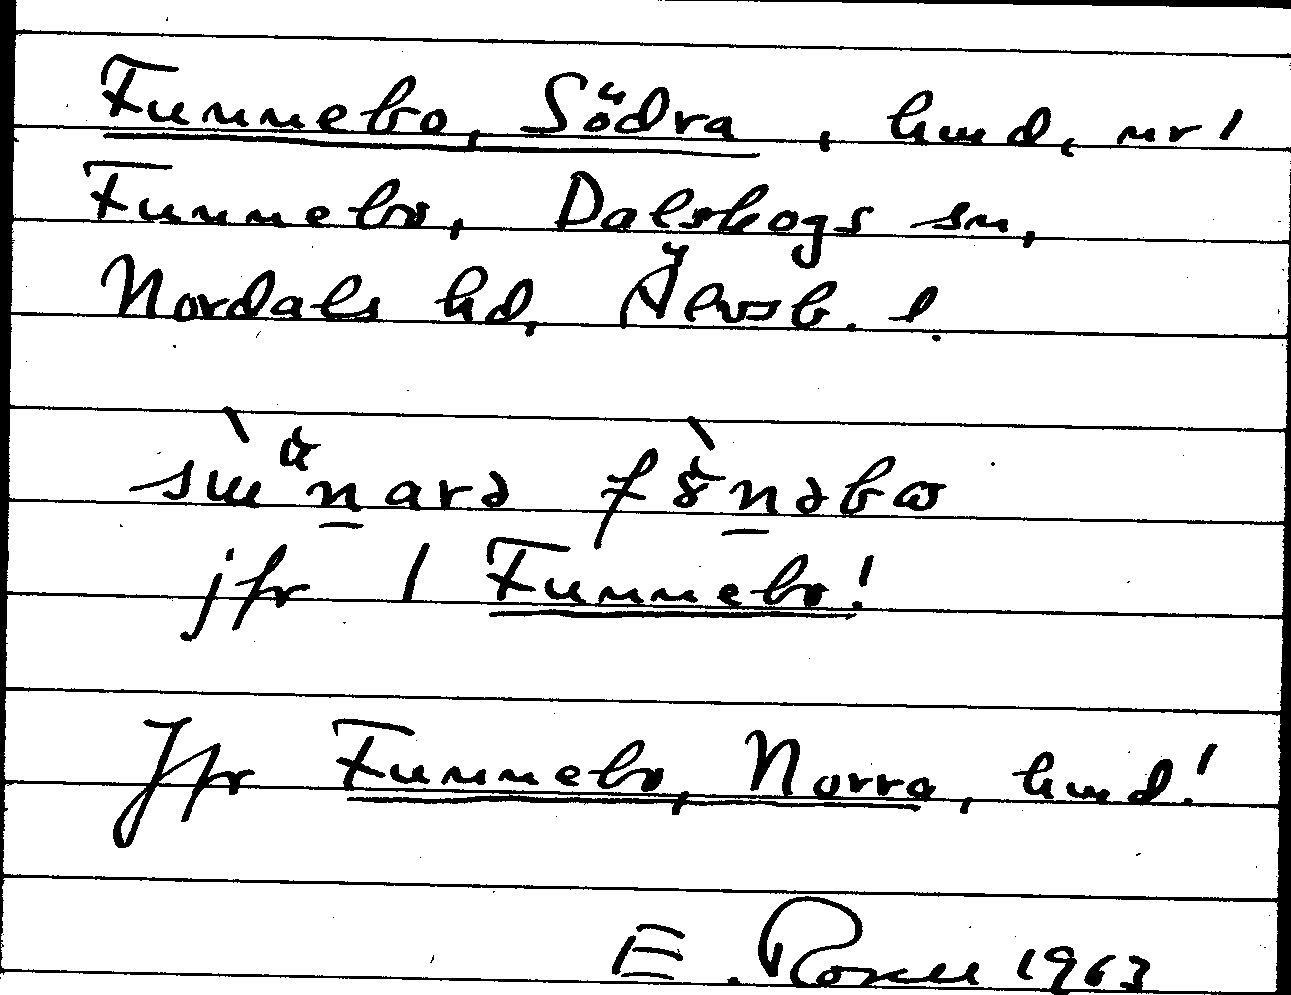 Funnebo, Södra, hmd, nr 1
Funnebo, Dalskogs sn,
Nordals hd, Älvsb. l.
narə nəbω
jfr 1 Funnebo!
Jfr Funnebo, Norra, hmd!
E. Rosell 1963